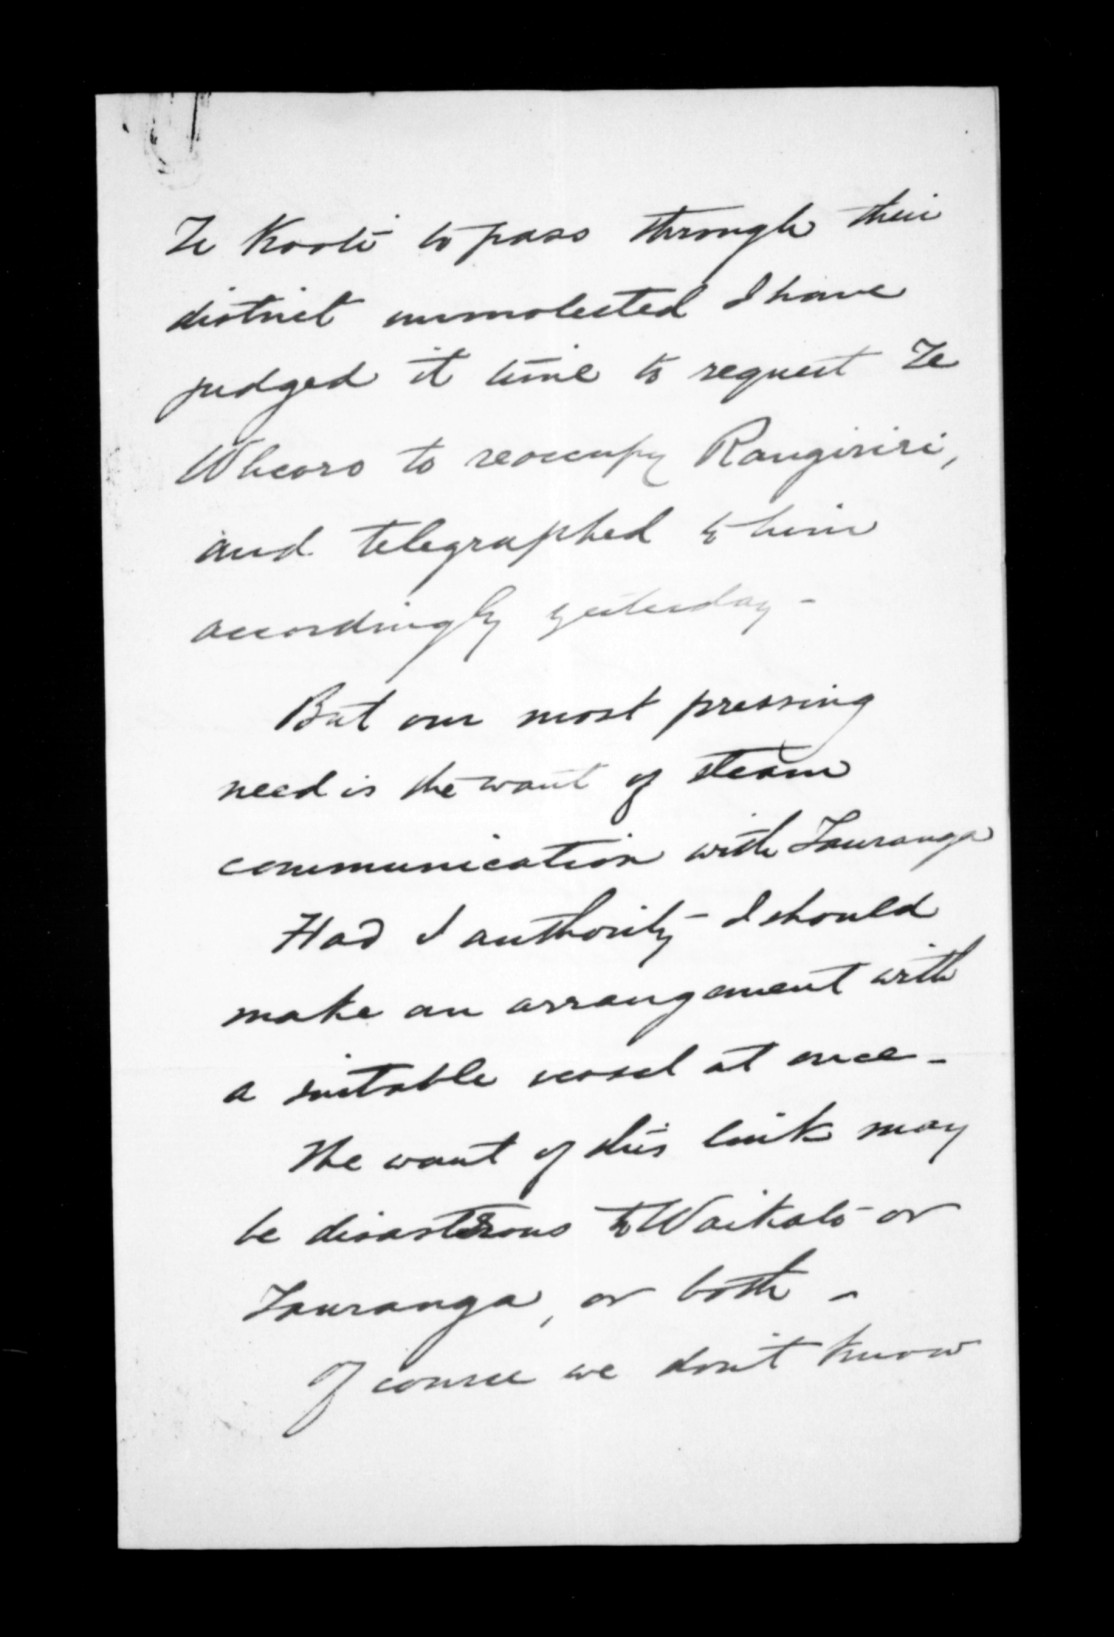 Te Kooti to pass through their
district unmolested I have
judged it time to request Te
Wheoro to reoccupy Rangiriri,
and telegraphed to him
accordingly yesterday -
But our most pressing
need is the want of steam
communication with Tauranga
Had I authority I should
make an arrangement with
a suitable vessel at once -
The want of this link may
be disastrous to Waikato or
Tauranga, or both -
Of course we don't know